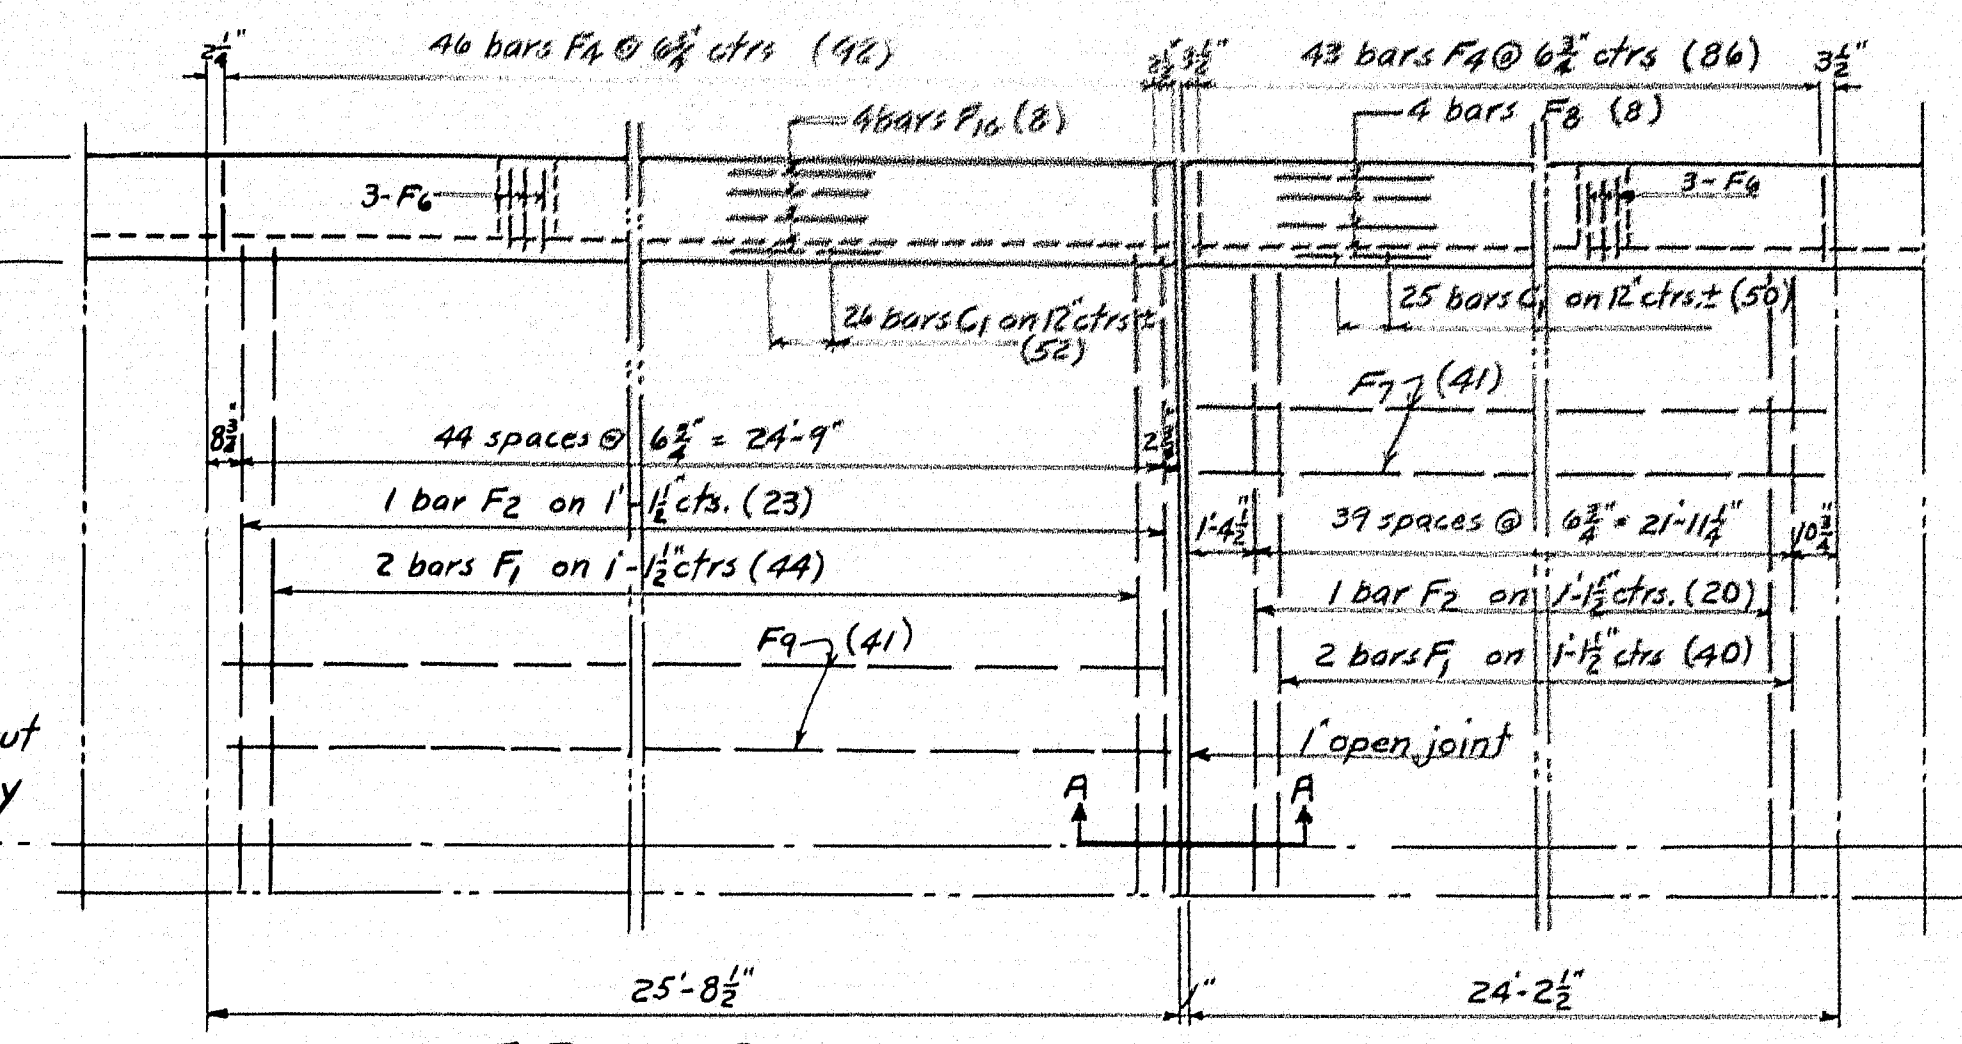 2¼"
46 bars F4 @ 6¾" ctrs (92)
3½"
43 bars F4 @ 6¾" ctrs (86)
3½"
4 bars F10 (8)
4 bars F8 (8)
3-F6
3-F6
26 bars C1 on 12" ctrs ±
(52)
25 bars C1 on 12" ctrs. ± (50)
F7 (41)
8¾"
44 spaces @ 6¾" = 24'-9"
1 bar F2 on 1'-1½" cts. (23)
1'-4½"
39 spaces @ 6¾" = 21'-11¼"
10¾"
2 bars F1 on 1'-1½" ctrs (44)
1 bar F2 on 1'-1½" ctrs. (20)
F9 (41)
2 bars F1 on 1'-1½" ctrs (40)
ut
1" open joint
y
A
A
25'-8½"
1"
24'-2½"